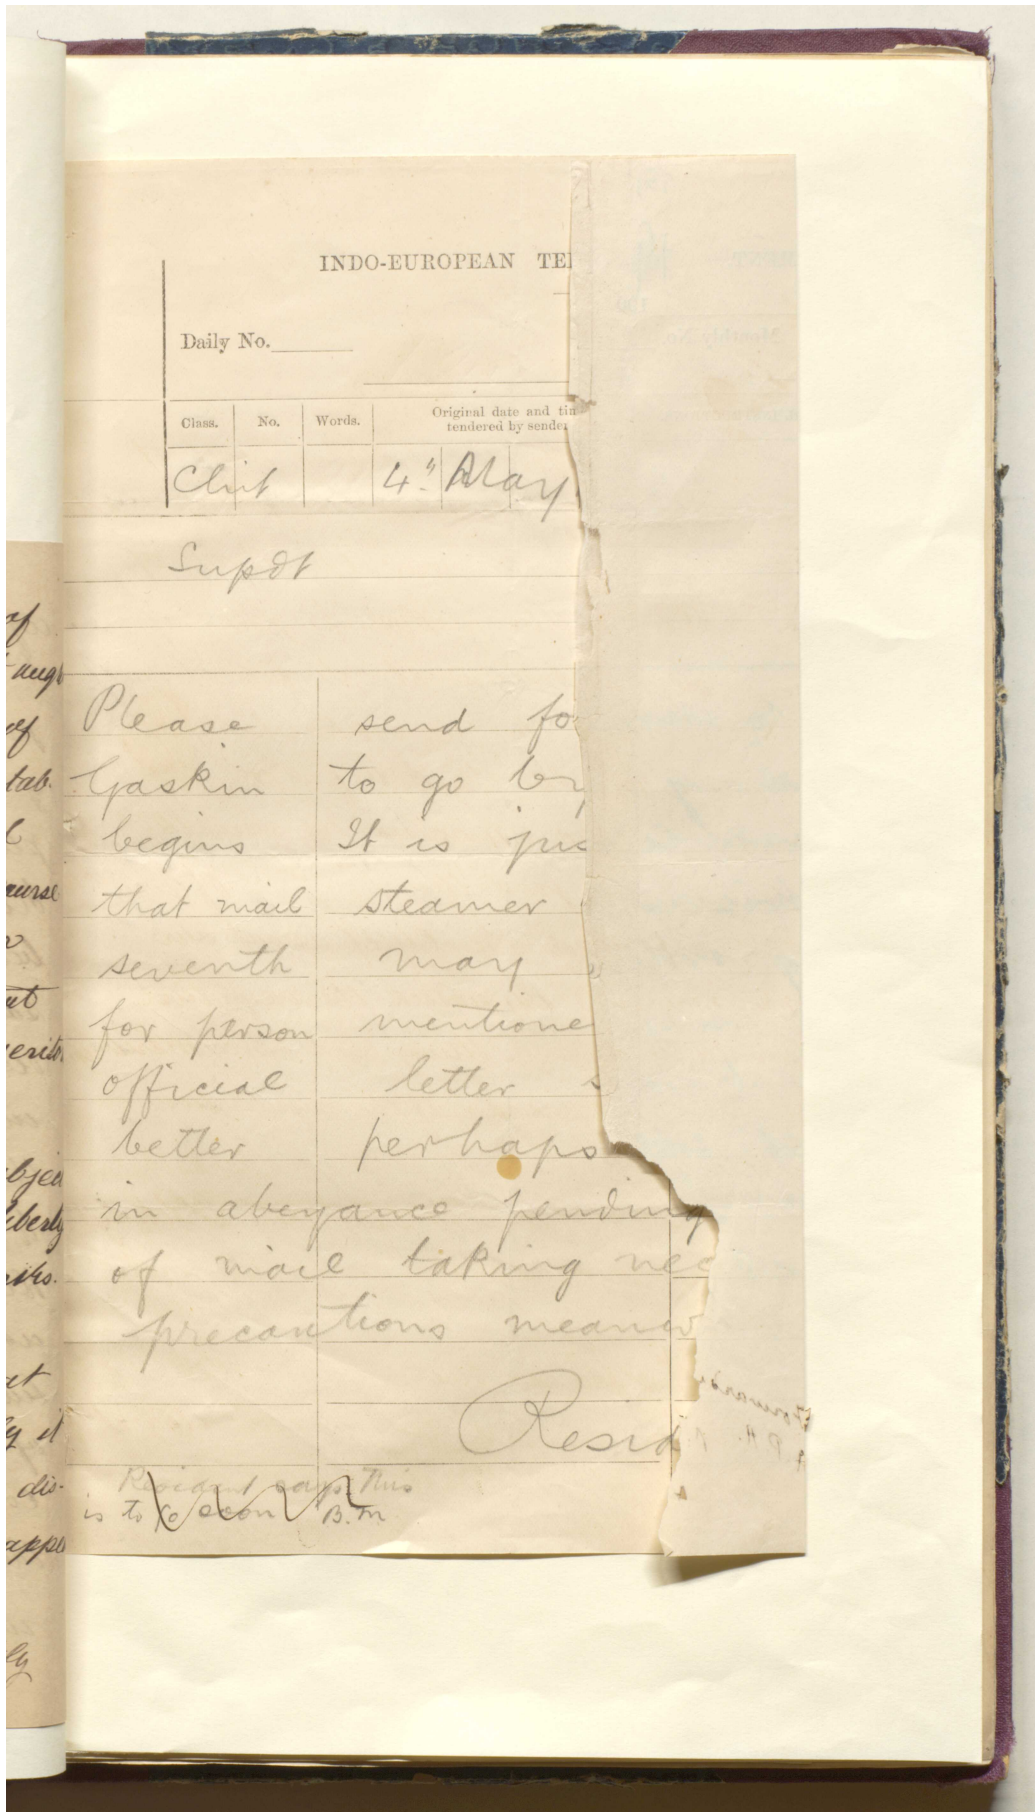 INDO-EUROPEAN TEL
Daily No.
Class. No. Words. Original date and tim
tendered by sender
Chit 4" May
Supdt
Please send fo
Gaskin to go by
begins It is jus
that mail steamer
seventh may
for person mentione
official letter s
better perhaps
in abeyance pending
of mail taking nec
precautions meanw
Resid
Resident says This
is to go soon B.M.
of
augh
of
tab.
l
ourse
ut
bjec
iberly
iks.
at
ly it
dis-
appe
ly